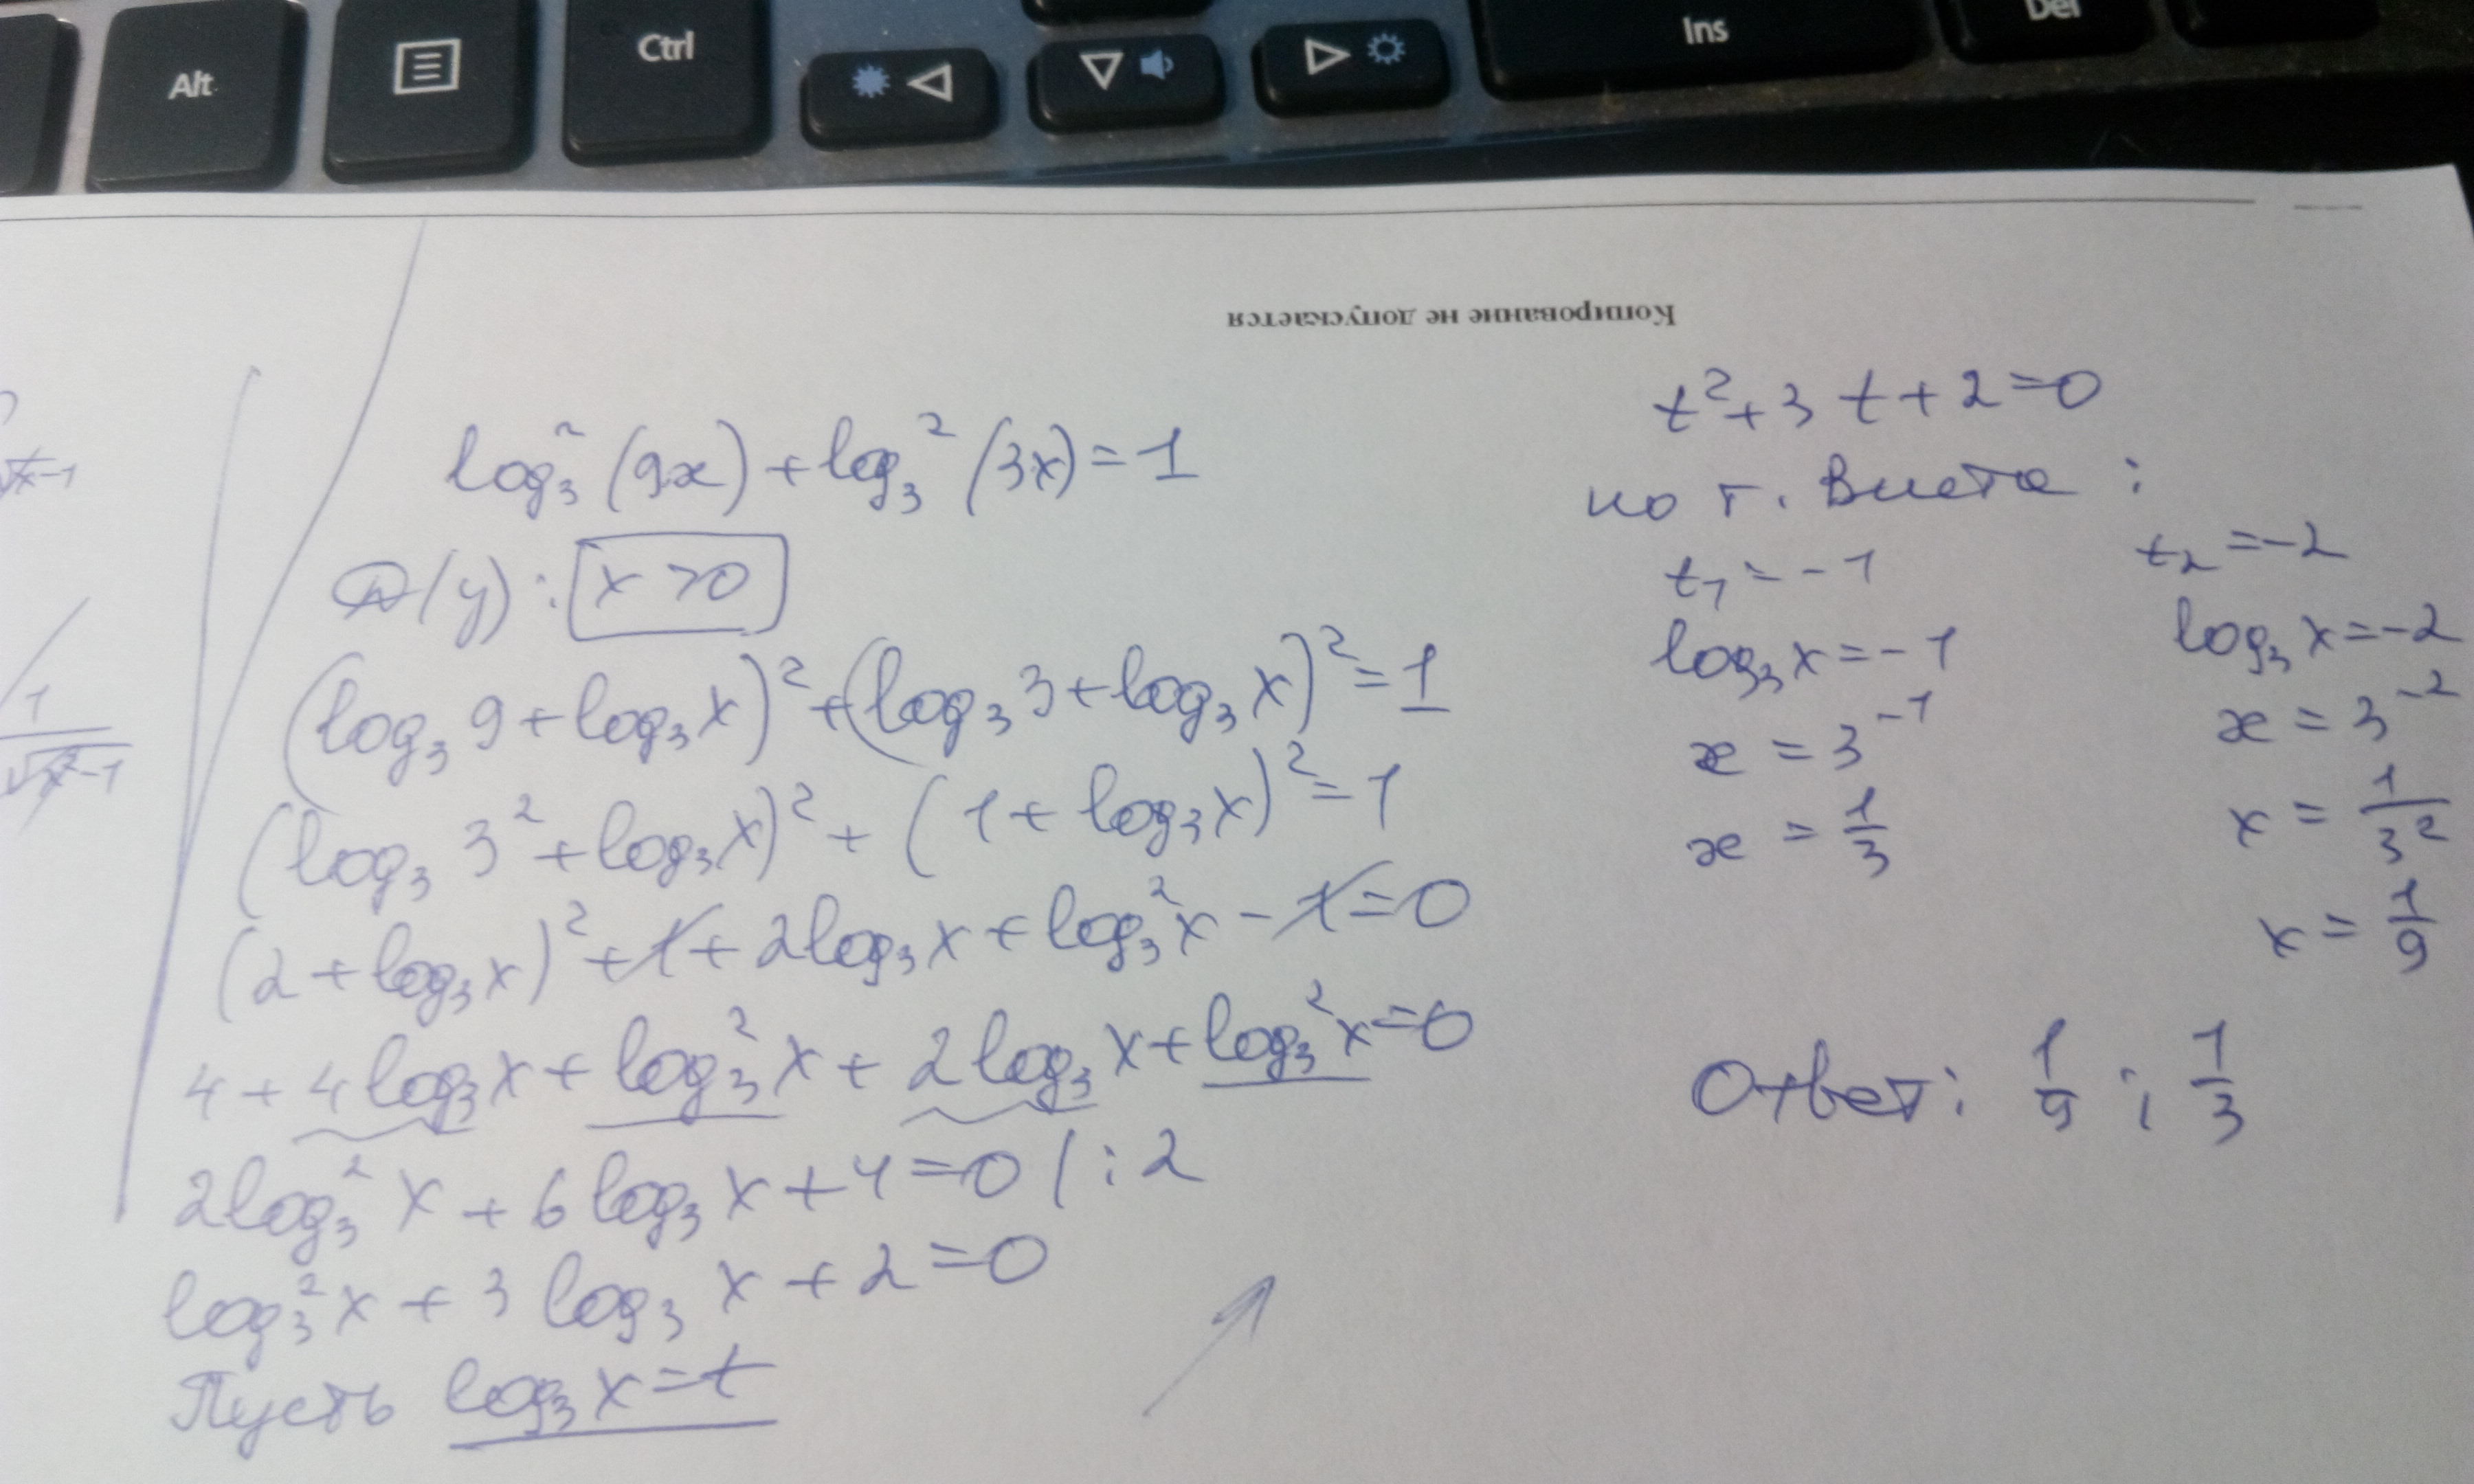 Alt
Ctrl
Ins
Del
Копирование не допускается
log₃²(9x) + log₃²(3x) = 1
D(y): x > 0
(log₃ 9 + log₃ x)² + (log₃ 3 + log₃ x)² = 1
(log₃ 3² + log₃ x)² + (1 + log₃ x)² = 1
(2 + log₃ x)² + 1 + 2log₃ x + log₃² x - 1 = 0
4 + 4log₃ x + log₃² x + 2log₃ x + log₃² x = 0
2log₃² x + 6log₃ x + 4 = 0 / : 2
log₃² x + 3 log₃ x + 2 = 0
Пусть log₃ x = t
t² + 3t + 2 = 0
по т. Виета :
t₁ = -1
log₃ x = -1
x = 3⁻¹
x = 1/3
t₂ = -2
log₃ x = -2
x = 3⁻²
x = 1/3²
x = 1/9
Ответ: 1/9 ; 1/3